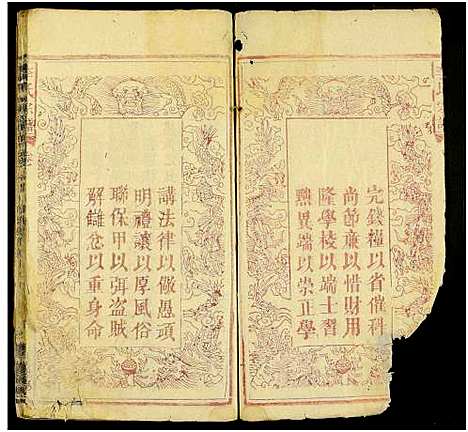 完錢糧以省催科
尚節廉以惜財用
隆學校以端士習
黜異端以崇正學
講法律以儆愚頑
明禮讓以厚風俗
聯保甲以弭盜賊
解讎忿以重身命